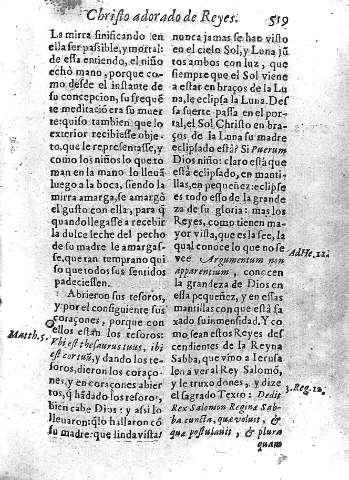 Christo adorado de Reyes. 519
La mirra sinificando en
ella ser passible, y mortal:
de esta entiendo, el niño
echò mano, porque co-
mo desde el instante de
su concepcion, su freqüẽ
te meditaciõ era su muer
te: quiso tambien que lo
exterior recibiesse obje-
to, que le representasse, y
como los niños lo que to
man en la mano lo lleuã
luego a la boca, siendo la
mirra amarga, se amargò
el gusto con ella; para q̃
quando llegasse a recebir
la dulce leche del pecho
de su madre le amargas-
se, que tan temprano qui
so que todos sus sentidos
padeciessen.
Abrieron sus tesoros,
y por el consiguiente sus
coraçones, porque con
ellos estan los tesoros:
Matth. 5.
Vbi est thesaurus tuus, ibi
est cor tuũ, y dando los te-
soros, dieron los coraço-
nes, y en coraçones abier
tos, q̃ hã dado los tesoros,
bien cabe Dios: y assi lo
lleuaron: q̃ lo hallaron cõ
su madre: que linda vista!
nunca jamas, se han visto
en el cielo Sol, y Luna jũ
tos ambos con luz, que
siempre que el Sol viene
a estar en braços de la Lu
na, le eclipsa la Luna. Des
sa suerte passa en el por-
tal, el Sol Christo en bra-
ços de la Luna su madre
eclipsado està? Si Puerum
Dios niño: claro està que
està eclipsado, en manti-
llas, en pequeñez: eclipse
es todo esso de la grande
za de su gloria: mas los
Reyes, como tienen ma-
yor vista, que es la fee, la
qual conoce lo que no se
vee Argumentum non
Ad He. 12.
apparentium, conocen
la grandeza de Dios en
essa pequeñez, y en essas
mantillas con que està fa
xado su inmensidad. Y co
mo sean estos Reyes des
cendientes de la Reyna
Sabba, que vino a Ierusa
len a ver al Rey Salomõ,
y le truxo dones, y dize
3. Reg. 12.
el sagrado Texto: Dedit
Rex Salomon Reginæ Sab-
ba cuncta, quæ voluit, &
quæ postulauit, & plura
quam